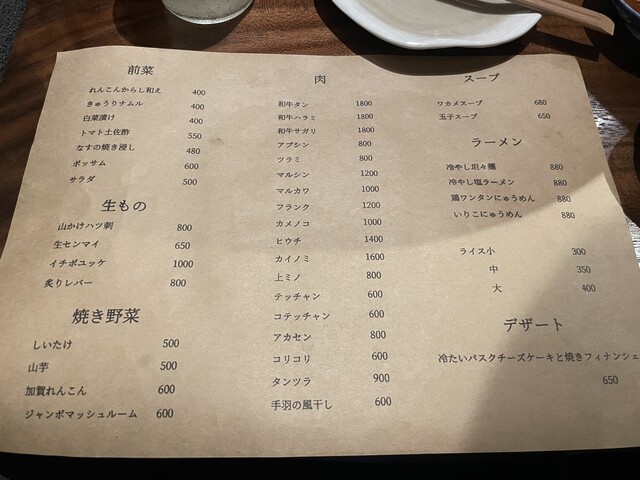 前菜
れんこんからし和え 400
きゅうりナムル 400
白菜漬け 400
トマト土佐酢 550
なすの焼き浸し 480
ポッサム 600
サラダ 500
生もの
山かけハツ刺 800
生センマイ 650
イチボユッケ 1000
炙りレバー 800
焼き野菜
しいたけ 500
山芋 500
加賀れんこん 600
ジャンボマッシュルーム 600
肉
和牛タン 1800
和牛ハラミ 1800
和牛サガリ 1800
アブシン 800
ツラミ 800
マルシン 1200
マルカワ 1000
フランク 1200
カメノコ 1000
ヒウチ 1400
カイノミ 1600
上ミノ 800
テッチャン 600
コテッチャン 600
アカセン 800
コリコリ 600
タンツラ 900
手羽の風干し 600
スープ
ワカメスープ 680
玉子スープ 650
ラーメン
冷やし坦々麺 880
冷やし塩ラーメン 880
鶏ワンタンにゅうめん 880
いりこにゅうめん 880
ライス小 300
中 350
大 400
デザート
冷たいバスクチーズケーキと焼きフィナンシェ
650